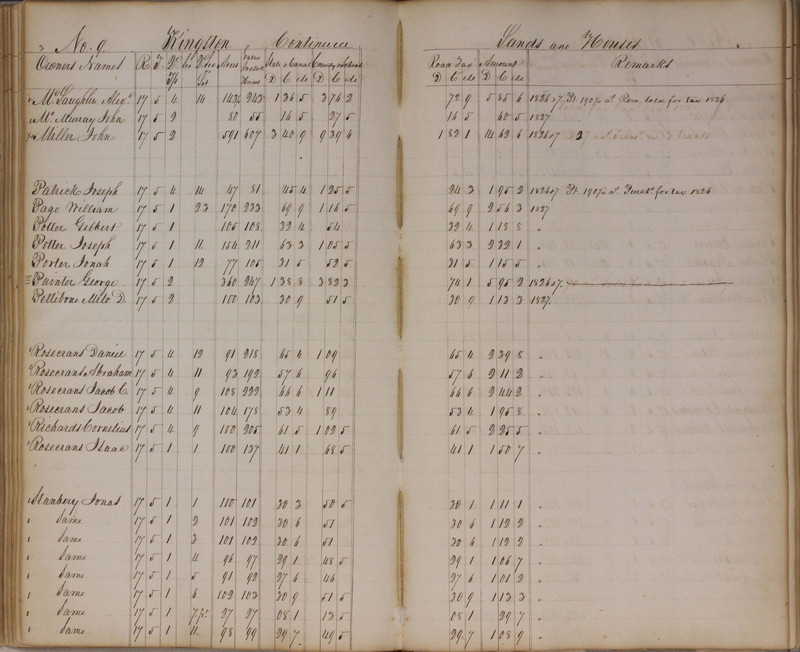 No. 9. Kingston Continued Lands and Houses
Owners Names R T Qr S/S Lot Acres State & Canal County & School Road Tax Amount Remarks
D C M D C M D C M D C M
McLaughlin Alexr 17 5 4 14 143 243 1 36 5 3 76 2 72 9 5 85 6 1826 & 7.
McMurray John 17 5 2 80 55 16 5 27 5 16 5 60 5 1827
Miller John 17 5 2 591 607 3 40 9 9 39 4 1 82 1 14 62 6 1826 & 7
Patrick Joseph 17 5 4 14 47 81 45 4 1 25 5 24 3 1 95 2 1826 & 7. for tax 1826
Page William 17 5 1 23 170 233 69 9 1 16 5 69 9 2 56 3 1827
Potter Gilbert 17 5 1 105 108 32 4 54 32 4 1 18 8 "
Potter Joseph 17 5 1 11 154 211 63 3 1 05 5 63 3 2 32 1 "
Porter Jonah 17 5 1 12 77 105 31 5 52 5 31 5 1 15 5 "
Painter George 17 5 2 360 247 1 38 8 3 82 3 74 1 5 95 2 1826 & 7.
Pettibone Milo D. 17 5 2 100 103 30 9 51 5 30 9 1 13 3 1827.
Rosecrans Daniel 17 5 4 12 91 218 65 4 1 09 65 4 2 39 8 "
Rosecrans Abraham 17 5 4 11 93 192 57 6 96 57 6 2 11 2 "
Rosecrans Jacob C. 17 5 4 9 108 222 66 6 1 11 66 6 2 44 2 "
Rosecrans Jacob 17 5 4 11 104 178 53 4 89 53 4 1 95 8 "
Richards Cornelius 17 5 4 9 100 205 61 5 1 02 5 61 5 2 25 5 "
Rosecrans Isaac 17 5 1 1 100 137 41 1 68 5 41 1 1 50 7 "
Stanbery Jonas 17 5 1 1 100 101 30 3 50 5 30 1 1 11 1 "
Same 17 5 1 2 101 102 30 6 51 30 6 1 12 2 "
Same 17 5 1 3 101 102 30 6 51 30 6 1 12 2 "
Same 17 5 1 4 96 97 29 1 48 5 29 1 1 06 7 "
Same 17 5 1 5 91 92 27 6 46 27 6 1 01 2 "
Same 17 5 1 6 102 103 30 9 51 5 30 9 1 13 3 "
Same 17 5 1 7 pt 27 27 08 1 13 5 08 1 29 7 "
Same 17 5 1 11 98 99 29 7 49 5 29 7 1 08 9 "